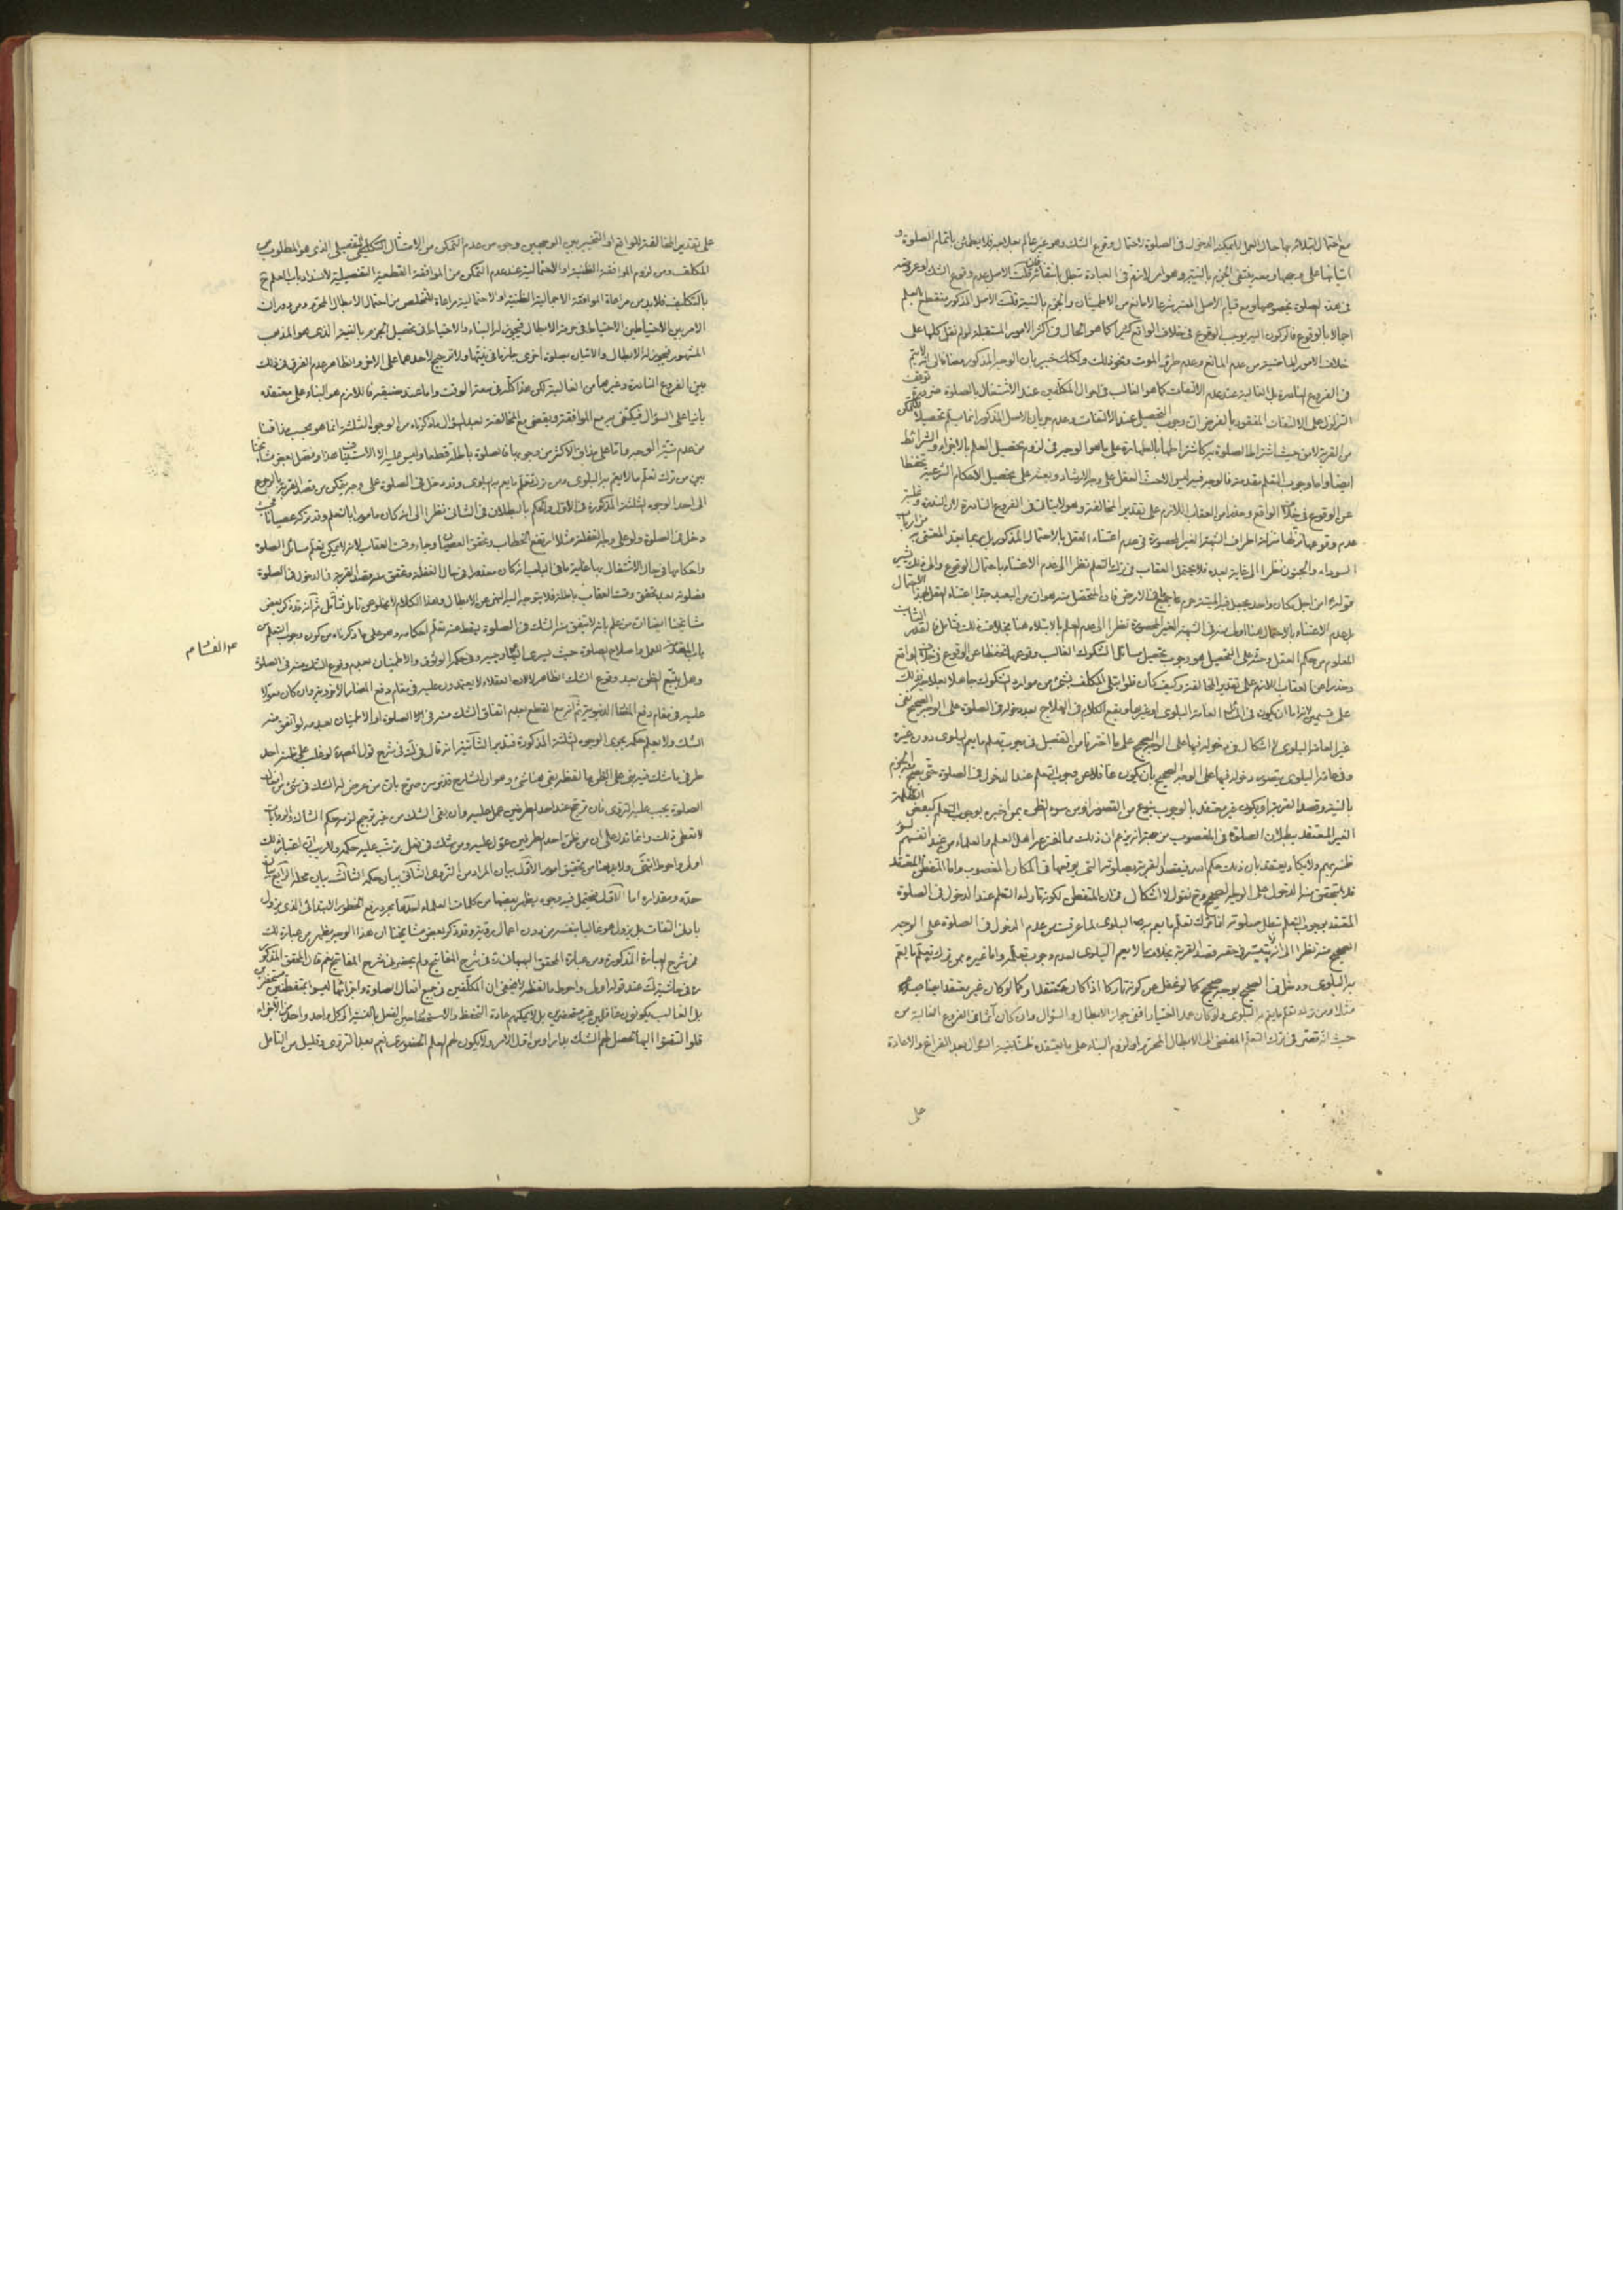 مع احتمال ابتلائه بها حال العمل لا يمكنه الدخول فى الصلوة لاحتمال وقوع الشك وهو غير عالم بعلاجه فلا يطمئن باتمام الصلوة و
اتيانها على وجهها ومعه ينتفى الجزم بالنية وهو امر لازم فى العبادة تبطل بانتفائه قلت الاصل عدم وقوع الشك او عروضه
فى هذه الصلوة بخصوصها ومع قيام الاصل المعتبر شرعا لا مانع من الاطمينان والجزم بالنية قلت الاصل المذكور منقطع بالعلم
اجمالا بالوقوع فالركون اليه يوجب الوقوع فى خلاف الواقع كثيرا كما هو الحال فى اكثر الامور المستقبلة لو لم نقل كلها على
خلاف الامور الماضية من عدم المانع وعدم طرو الموت ونحو ذلك ولكنك خبير بان الوجه المذكور مضافا الى انه لا يتم
فى الفروع النادرة بل الغالبة عند عدم الالتفات كما هو الغالب فى احوال المكلفين عند الاشتغال بالصلوة ضرورة توقف
التزلزل على الالتفات المفقود بالفرض ان وجوب التحصيل عند الالتفات وعدم جريان الاصل المذكور انما
من القربة لا من حيث اشتراط الصلوة به كاشتراطها بالطهارة على ما هو الوجه فى لزوم تحصيل العلم بالاجزاء والشرائط
ايضا واما وجوب التعلم مقدمة فالوجه فيه ليس الا حث العقل على وجه الارشاد وبعثه على تحصيل الاحكام الشرعية تحفظا
عن الوقوع فى خلاف الواقع وحذرا من العقاب اللازم على تقدير المخالفة وهو لا يتأتى فى الفروع النادرة لان الندرة وغلبة
عدم وقوعها تنزلها منزلة اطراف الشبهة الغير المحصورة فى عدم اعتناء العقل بالاحتمال المذكور بل ربما يعد المعتنى به من ارباب
السوداء والجنون نظرا الى غاية بعده فلا يحتمل العقاب فى ترك التعلم نظرا الى عدم الاعتناء باحتمال الوقوع والى ذلك يشير
قوله ع امن اجل مكان واحد يجعل فيه الميتة حرم ما جميع فى الارض فان المحتمل منه هو ان من البعيد جدا اعتناء العقل بهذا الاحتمال
بل عدم الاعتناء بالاحتمال هنا اولى منه فى الشبهة الغير المحصورة نظرا الى عدم العلم بالابتلاء هنا بخلافه هناك فتامل فالقدر الثابت
المعلوم من حكم العقل وحثه على التحصيل هو وجوب تحصيل مسائل الشكوك الغالب وقوعها تحفظا عن الوقوع فى خلاف الواقع
وحذرا عن العقاب اللازم على تقدير المخالفة وكيف كان فلو ابتلى المكلف بشئ من موارد الشكوك جاهلا بعلاجه فذلك
غير العامة البلوى لا اشكال فى دخوله فيها على الوجه الصحيح على ما اخترنا من التفصيل فى وجوب تعلم ما يعم البلوى دون غيره
وفى عامة البلوى يتصور دخوله فيها على الوجه الصحيح بان يكون غافلا عن وجوب التعلم عند الدخول فى الصلوة حتى يصح منه الجزم
بالنية وقصد القربة او يكون غير معتقد بالوجوب بنوع من القصور او من سوء الظن بمن اخبره بوجوب التعلم كبعض الظلمة
الغير المعتقد ببطلان الصلوة فى المغصوب من جهة انه يزعم ان ذلك مبالغة من اهل العلم والعلماء من عند انفسهم لسوء
ظنه بهم ولا يكاد يعتقد بان ذلك حكم الله فيقصد القربة بصلوته التى يوقعها فى المكان المغصوب واما المتفطن المعتقد
فلا يتحقق منه الدخول على الوجه الصحيح وح نقول لا اشكال فى ان المتفطن لكونه تاركا للتعلم عند الدخول فى الصلوة
المعتقد بوجوب التعلم تبطل صلوته اذا ترك تعلم ما يعم به البلوى لما عرفت من عدم الدخول فى الصلوة على الوجه
الصحيح منه نظرا الى انه لا يتمشى فى حقه قصد القربة بخلاف ما لا يعم البلوى لعدم وجوب تعلمه واما غيره ممن ترك تعلم ما يعم
به البلوى ودخل فى الصحيح بوجه صحيح كما لو غفل عن كونه تاركا اذا كان معتقدا وكما لو كان غير معتقد
حيث انه قصر فى ترك التعلم المفضى الى الابطال المحرم او لزوم البناء على ما يعتقده ظنا بنية السؤال بعد الفراغ والاعادة
على
على تقدير المخالفة للواقع او التخيير بين الوجهين وجوه من عدم التمكن من الامتثال التفصيلى الذى هو المطلوب من
المكلف ومن لزوم الموافقة الظنية او الاحتمالية عند عدم التمكن من الموافقة القطعية التفصيلية لانسداد باب العلم ح
بالتكليف فلا بد من مراعاة الموافقة الاجمالية الظنية او الاحتمالية مراعاة للتخلص من احتمال الابطال المحرم ومن دوران
الامر بين الاحتياطين الاحتياط فى حرمة الابطال فيجوز له البناء والاحتياط فى تحصيل الجزم بالنية الذى هو المذهب
المشهور فيجوز له الابطال والاتيان بصلوة اخرى جازما فى نيتها ولا ترجيح لاحدهما على الاخر والظاهر عدم الفرق فى ذلك
بين الفروع النادرة وغيرها من الغالبة لكن هذا كله فى سعة الوقت واما عند ضيقه فاللازم هو البناء على معتقده
بانيا على السؤال فيكتفى به مع الموافقة ويقضى مع المخالفة بعد السؤال ما ذكرناه من الوجوه الثلثة انما هو بحسب مذاقنا
من عدم شرطية الوجه واما على مذاق الاكثر من وجوبها فالصلوة باطلة قطعا وليس عليه الا الاستيناف هذا وفصل بعض مشايخنا
بين من ترك تعلم ما لا يعم به البلوى ومن ترك تعلم ما يعم به البلوى وقد دخل فى الصلوة على وجه يمكن من قصد القربة بالرجوع
الى احد الوجوه الثلثة المذكورة فى الاول والحكم بالبطلان فى الثانى نظرا الى انه كان مامورا بالتعلم وقد تركه عصيانا فحيث
دخل فى الصلوة ولو على وجه الغفلة مثلا ارتفع الخطاب وتحقق العصيان وجاء وقت العقاب لانه لا يمكن تعلم مسائل الصلوة
واحكامها فى حال الاشتغال بها غاية ما فى الباب انه كان معذورا فى حال الغفلة وتحقق منه قصد القربة فى الدخول فى الصلوة
فصلوته بعد تحقق وقت العقاب باطلة فلا يتوجه اليه النهى عن الابطال وهذا الكلام لا يخلو عن تامل فتامل ثم انه قد ذكر بعض
مشايخنا ايضا ان من علم بانه لا يتفق منه الشك فى الصلوة يسقط عنه تعلم احكامه وهو على ما ذكرناه من كون وجوب التعلم من
باب المقدمة للعمل واصلاح الصلوة حيث يسرى الشك وجيه وفى حكمه الوثوق والاطمينان بعدم وقوع الشك منه فى الصلوة
وهل يتبع الظن بعدم وقوع الشك الظاهر لا لان العقلاء لا يعتمدون عليه فى مقام دفع المضار الاخروية وان كان معولا
عليه فى مقام دفع المضار الدنيوية ثم انه مع القطع بعدم اتفاق الشك منه فى اثناء الصلوة او الاطمينان بعدمه لو اتفق منه
الشك ولا يعلم حكمه يجرى الوجوه الثلثة المذكورة فتدبر الثانية انه قال فى ذلك فى شرح قول المص ره لو غلب على ظنه احد
طرفى ما شك فيه بنى على الظن ما لفظه بقى هنا شئ وهو ان الشارح قدس سره صرح بان من عرض له الشك فى شئ من افعال
الصلوة يجب عليه التروى فان ترجح عنده احد الطرفين عمل عليه وان بقى الشك من غير ترجيح لزمه حكم الشاك والروايات
لا تعطى ذلك وانما تدل على ان من ظن احد الطرفين عول عليه ومن شك فى فعل ترتب عليه حكمه ولا ريب ان اعتبار ذلك
اولى واحوط انتهى ولا بد هنا من تحقيق امور الاول بيان المراد من التروى الثانى بيان حكمه الثالث بيان محله الرابع بيان
حده ومقداره اما الاول فيحتمل فيه وجوه يظهر بعضها من كلمات العلماء احدها مجرد رفع الخطور الابتدائى الذى يزول
بادنى التفات بل يزول هو غالبا بنفسه من دون اعمال روية وقد ذكر بعض مشايخنا ان هذا الوجه يظهر من عبارة ذلك
فى شرح العبارة المذكورة ومن عبارة المحقق البهبهانى ره فى شرح المفاتيح ولم يحضرنى شرح المفاتيح نعم قال المحقق المذكور
ره فى حاشية ذلك عند قوله اولى واحوط ما لفظه لا يخفى ان المكلفين فى جميع افعال الصلوة واجزائها ليسوا بمتفطنين مستحضرين
بل الغالب يكونون غافلين غير متفطنين بل لا يمكنهم عادة التحفظ والاستحضار حين الفعل بالنسبة الى كل واحد واحد من الاجزاء
فلو التفتوا اليها لحصل لهم الشك بها راسا من اول الامر ولا يكون لهم العلم الحضورى نعم بعد التروى وقليل من التامل